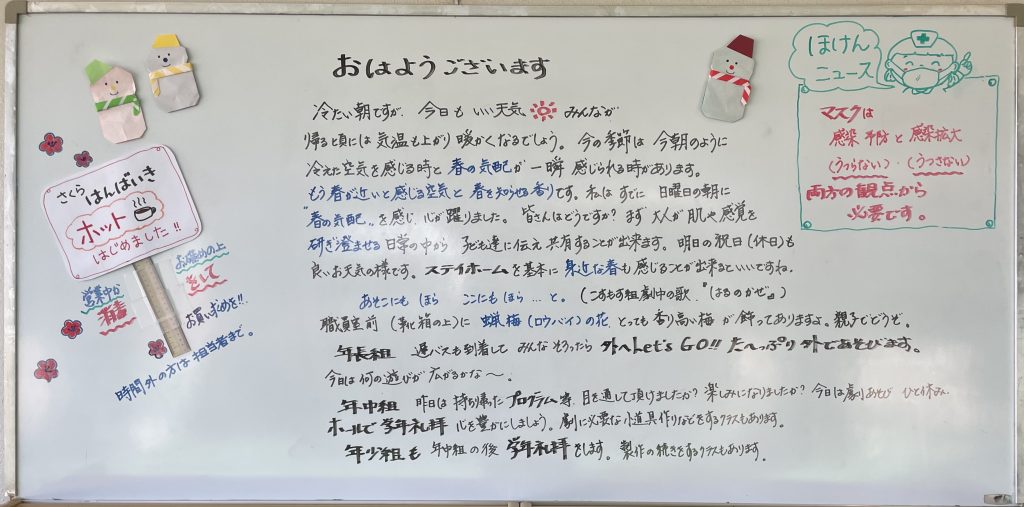 おはようございます
冷たい朝ですが、今日も いい天気 みんなが
帰る頃には 気温も上がり 暖かくなるでしょう。今の季節は 今朝のように
冷えた空気を感じる時と 春の気配が 一瞬 感じられる時があります。
もう春が近いと感じる空気と 春を知らせる香りです。私は すでに 日曜日の朝に
"春の気配"を感じ 心が躍りました。皆さんはどうですか? まず 大人が 肌や感覚を
研ぎ澄ませる日常の中から 子ども達に伝え 共有することが出来ます。明日の祝日(休日)も
良いお天気の様です。ステイホームを基本に 身近な春も 感じることが出来るといいですね。
あそこにも ほら ここにも ほら … と。(こすもす組劇中の歌 "はるのかぜ")
職員室前 (靴箱の上)に 蝋梅(ロウバイ)の花 とっても 香り高い梅 が 飾ってありますよ。親子でどうぞ。
年長組 遅バスも到着して みんなそろったら 外へ Let's GO!! たっぷり 外であそびます。
今日は何の遊びが 広がるかな〜。
年中組 昨日は 持ち帰った プログラム等 目を通して頂けましたか? 楽しみになりましたか? 今日は劇あそび ひと休み。
ホールで 学年礼拝 心を豊かにしましょう。劇に必要な小道具作りなどをするクラスもあります。
年少組も 年中組の後 学年礼拝をします。製作の続きをするクラスもあります。
さくら はんばいき
ホット
はじめました!!
お勧めの上
営業中が
消毒
をして
お買い求めを!!
時間外の方は 担当者まで。
ほけん
ニュース
マスクは
感染予防と 感染拡大
(うつらない)・(うつさない)
両方の観点から
必要です。